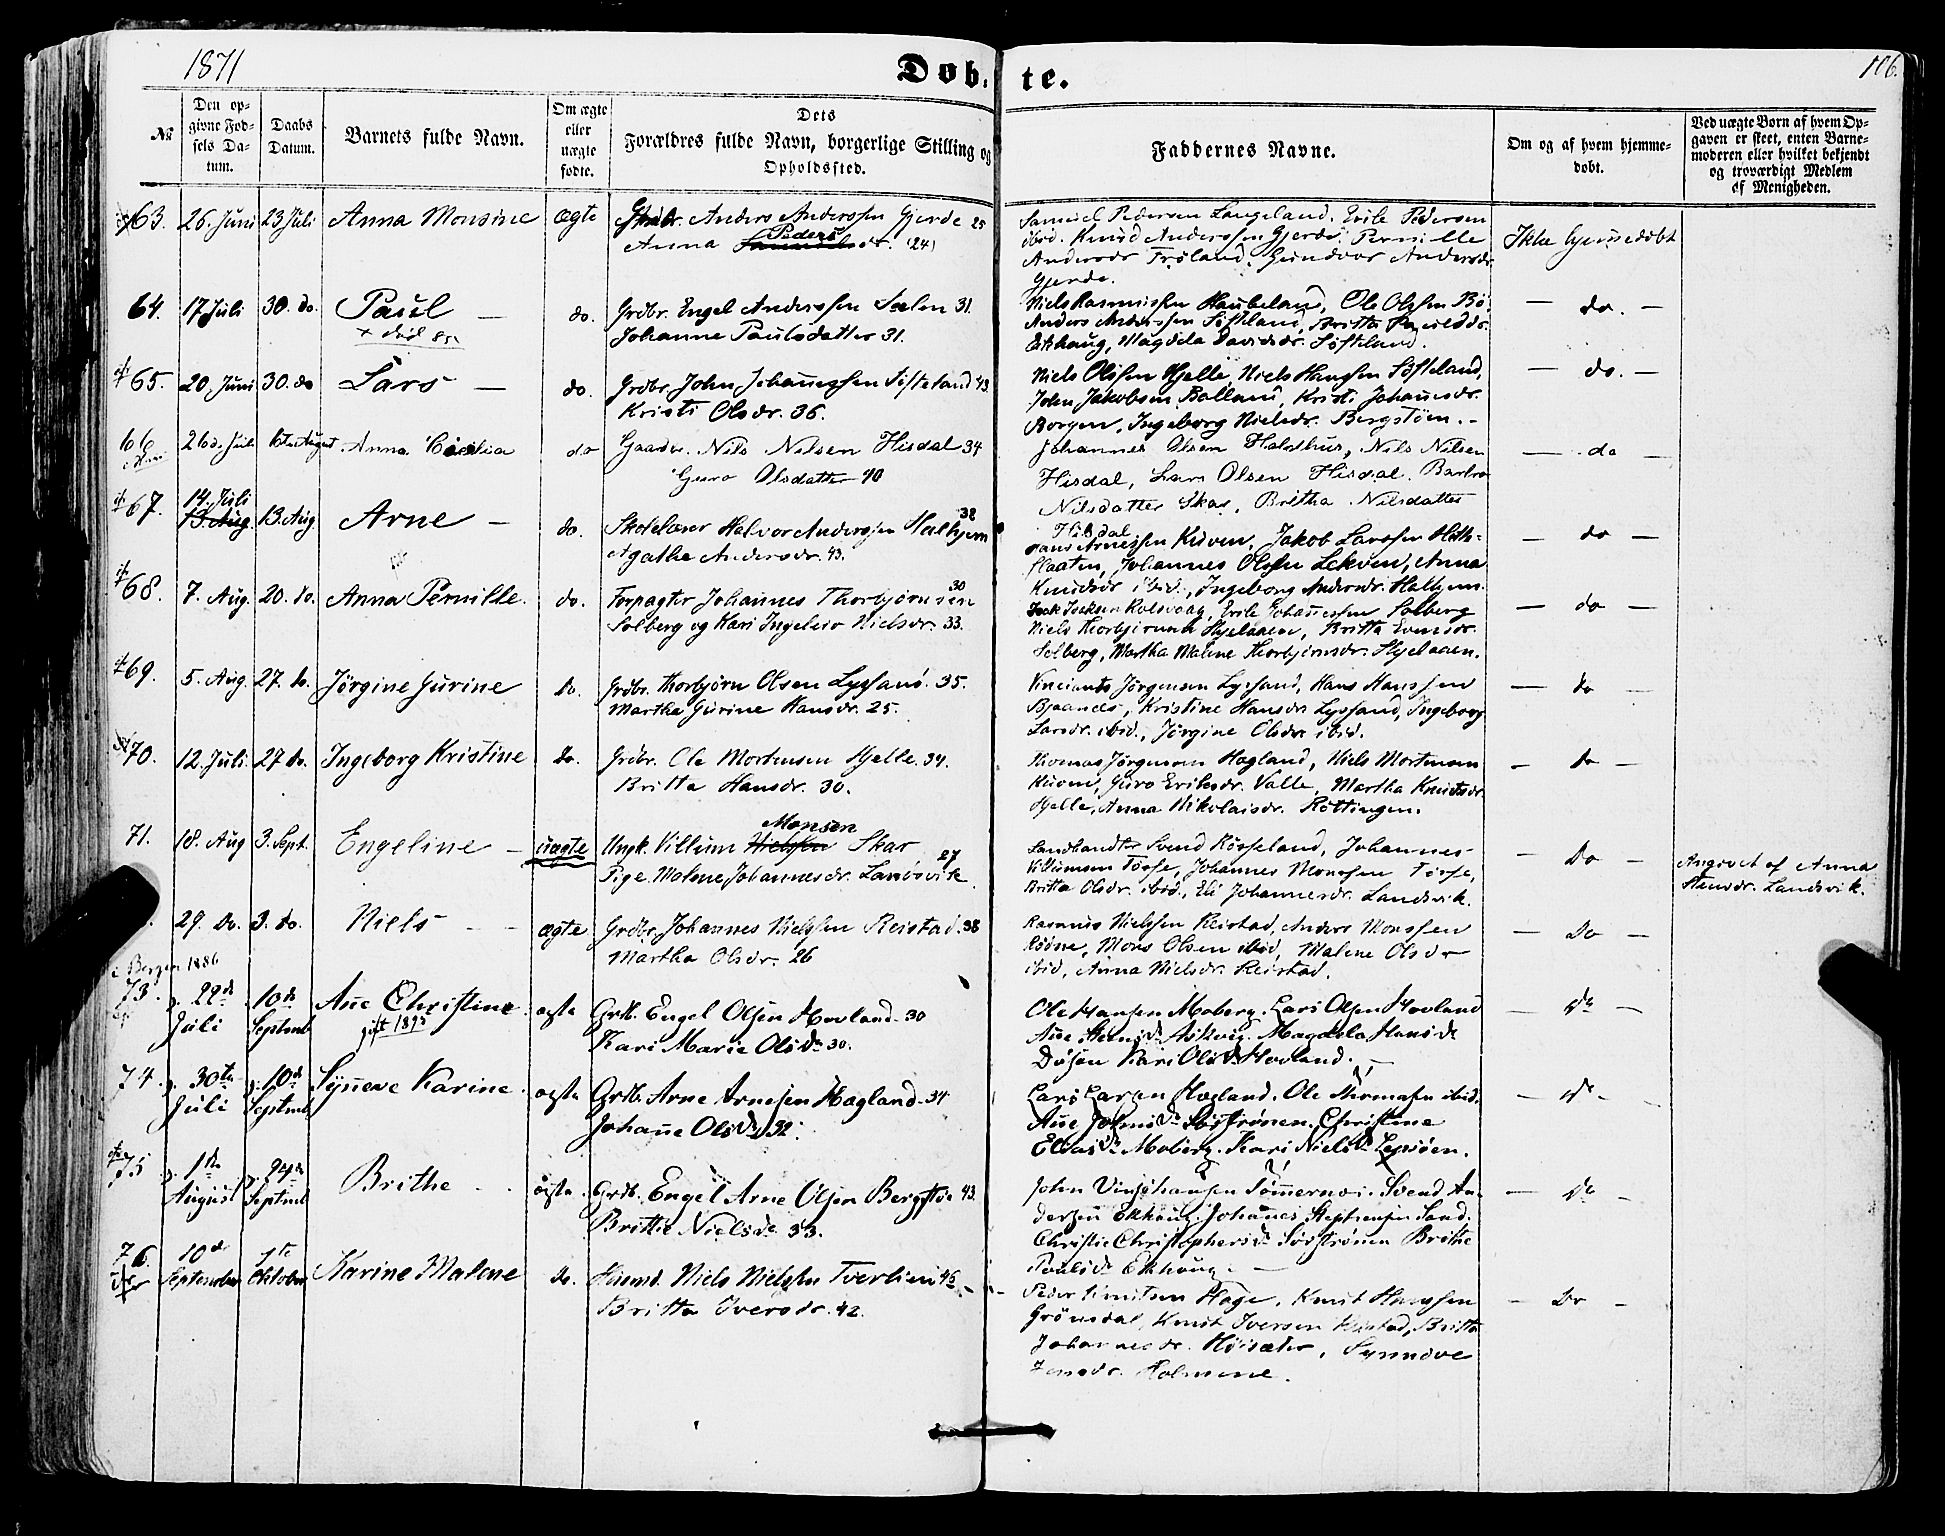 1871
Døb-
te.
106.
No
Den op-
givne Fød-
sels Da-
tum.
Daabs
Datum.
Barnets fulde Navn.
Om ægte
eller
uægte
fødte.
Dets
Forældres fulde Navn, borgerlige Stilling og
Opholdssted.
Faddernes Navne.
Om og af hvem hjemme-
døbt.
Ved uægte Børn af hvem Op-
gaven er skeet, enten Barne-
moderen eller hvilket bekjendt
og troværdigt Medlem
af Menigheden.
63. 26. Juni 23 Juli Anna Monsine ægte Grdbr. Anders Anderssen Gjerde 25
Peders
Anna dr. (24)
Samuel Pedersen Langeland, Erik Pedersen
ibid. Knud Anderssen Gjerde, Pernille
Andersdr Frøland, Gundvor Andersdr.
Gjerde.
Ikke hjemmedøbt
64. 17 Juli 30. do. Paul — do. Grdbr. Engel Anderssen Sælen 31.
Johanne Paulsdatter 31.
Niels Rasmussen Haubeland, Ole Olssen Bø
Anders Anderssen Søfteland, Britta
Ekhaug, Magdela Davidsdr. Søfteland.
— do. —
65. 20. Juni 30. do Lars — do. Grdbr. John Johannessen Søfteland 43.
Kristi Olsdr. 36.
Niels Olssen Hjelle, Niels Hanssen Søfteland,
John Jakobsen Balland, Kristi Johannesdr.
Borgen, Ingeborg Nielsdr. Bergstøen.
— do. —
66 26d. Juli 6te August Anna Cecilia do Gaardbr. Nils Nilsen Hisdal 34
Guro Olsdatter 40
Johannes Olsen Haldhus, Nils Nilsen
Hisdal, Lars Olsen Hisdal, Barbro
Nilsdatter Skar, Britha Nilsdatter
Hisdal
— do —
67. 14. Juli
13. Aug. 13. Aug. Arne — do. Skolelærer Halvor Anderssen Halhjem 38
Agathe Andersdr. 43.
Hans Arnessen Kuven, Jakob Larssen Hath-
flaaten, Johannes Olssen Lekven, Anna
Knudsdr ibid., Ingeborg Andersdr. Halhjem.
— do —
68. 7. Aug. 20. do. Anna Pernille. do. Forpagter Johannes Thorbjørnsen 30
Solberg og Kari Ingeleiv Nielsdr. 33.
Isak Isaksen Rolsvaag, Erik Johannessen Solberg
Niels Thorbjørnsen Skjelaaen, Britta Evensdr.
Solberg, Martha Malene Thorbjørnsdr. Skjelaaen.
— do —
69. 5. Aug. 27. do. Jørgine Gurine do. Grdbr. Thorbjørn Olsen Lyssand. 35.
Martha Gurine Hansdr. 25.
Vincients Jørgensen Lyssand, Hans Hanssen
Bjaanæs, Kristine Hansdr. Lyssand, Ingeborg
Larsdr. ibid., Jørgine Olsdr. ibid.
— do —
70. 12. Juli. 27 do. Ingeborg Kristine do. Grdbr. Ole Mortensen Hjelle. 34.
Britta Hansdr. 30.
Thomas Jørgensen Hagland, Niels Mortensen
Kuven, Guro Eriksdr. Valle, Martha Knudsdr.
Hjelle, Anna Nikolaisdr. Røttingen.
— do —
71. 18. Aug 3. Sept. Engeline — uægte Ungk. Villum Monsen Skar
Pige Malene Johannesdr. Landsvik. 27
Landhandler Svend Røsseland, Johannes
Villumsen Tøsse, Johannes Monssen Tøsse,
Britta Olsdr. ibid., Eli Johannesdr. Landsvik.
— Do —
Angivet af Anna
Stensdr. Landsvik.
29. Do. 3. do. Niels — ægte Grdbr. Johannes Nielssen Reistad. 38
Martha Olsdr. 26
Rasmus Nielssen Reistad, Anders Monssen
Røine, Mons Olsen ibid, Malene Olsdr
ibid, Anna Nielsdr. Reistad.
— Do —
i Bergen 1886
73. 22de
Juli 10de
Septmb Ane Christine.
gift 1893
ægte Grdb. Engel Olsen Hovland. 30
Kari Marie Olsdr 30.
Ole Hansen Moberg. Lars Olsen Hovland
Ane Askvig. Magdela Hansdr
Døsen Kari Olsdr Hovland.
— do —
74. 30te
Juli 10de
Septmb Synneve Karine. ægte Grdb. Arne Arnesen Hagland. 34
Johanne Olsdr 32.
Lars Larsen Hagland. Ole Thomasen ibid.
Ane Johnsdr Søstrønen. Christine
Eliasdr Moberg. Kari Nielsdr Lepsøen.
— do —
75 1de
August 24de
Septmb Brithe ægte. Grdb. Engel Arne Olsen Bergstøe 43.
Britte Nielsdr 33.
John Vinjehansen Tømmernæs. Svend An-
dersen Ekhoug. Johannes Stephensen Sand.
Christie Christophersdr Søstrønen Brithe
Poulsdr Ekhoug.
— do —
76. 10de
September 1te
Oktober Karine Malene do. Huusmd. Niels Nielssen Tverlien 45
Britta Iversdr. 42.
Peder Knutsen Hage, Knut Hanssen
Grønsdal, Knut Iversen Reistad, Britta
Johannesdr. Høisæter, Synnøve
Jensdr. Holmene.
— Do —